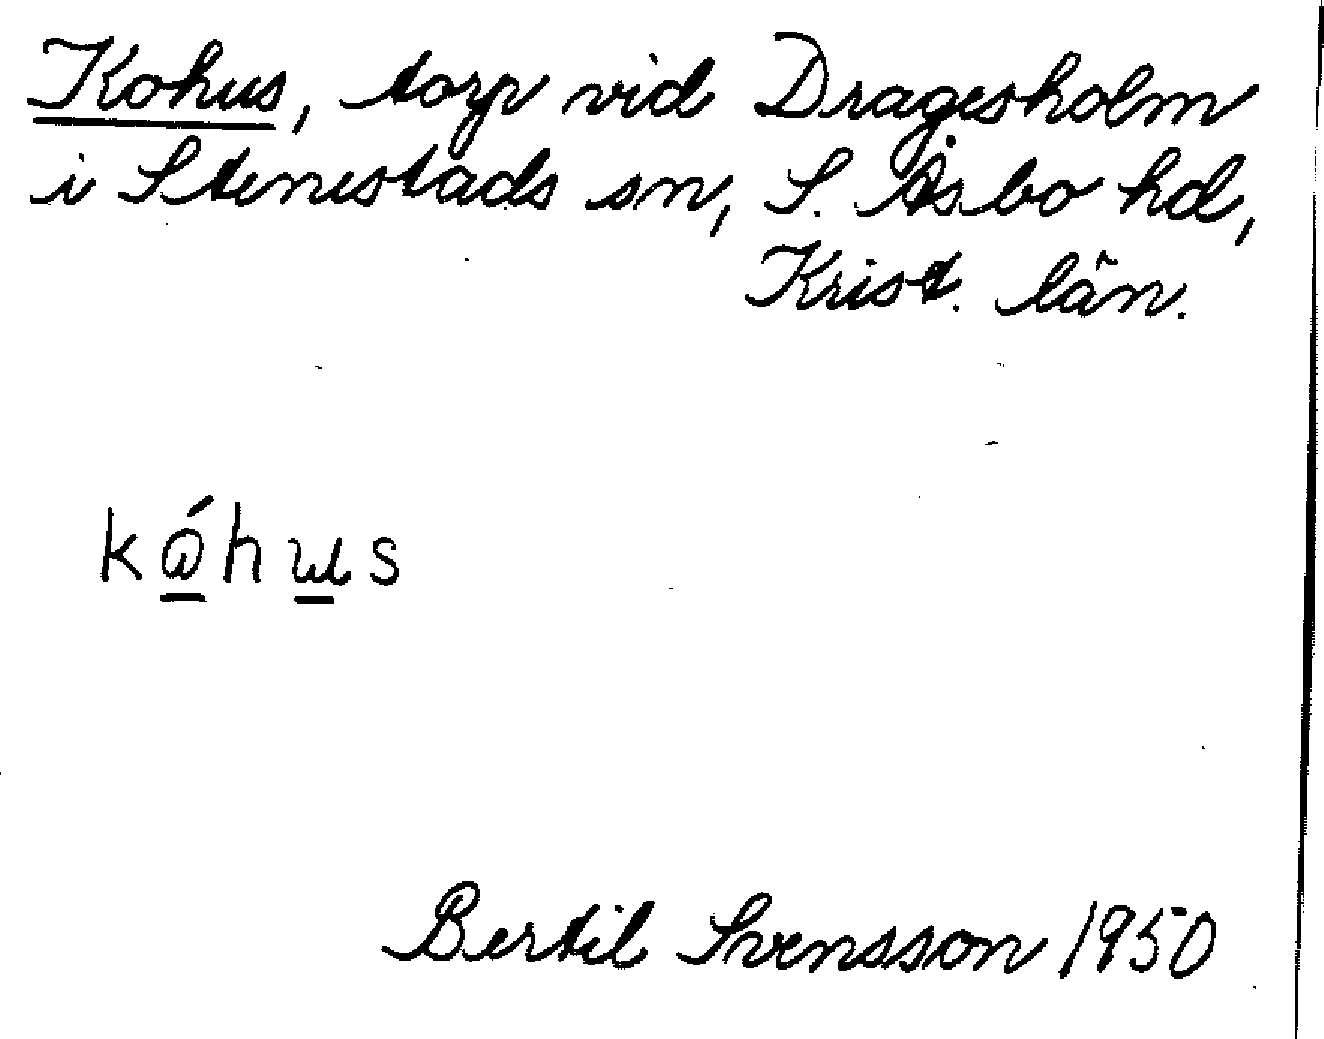 Kohus, torp vid Dragesholm
i Stenestads sn, S. Åsbo hd,
Krist. län.
kó̲hu̲s
Bertil Svensson 1950